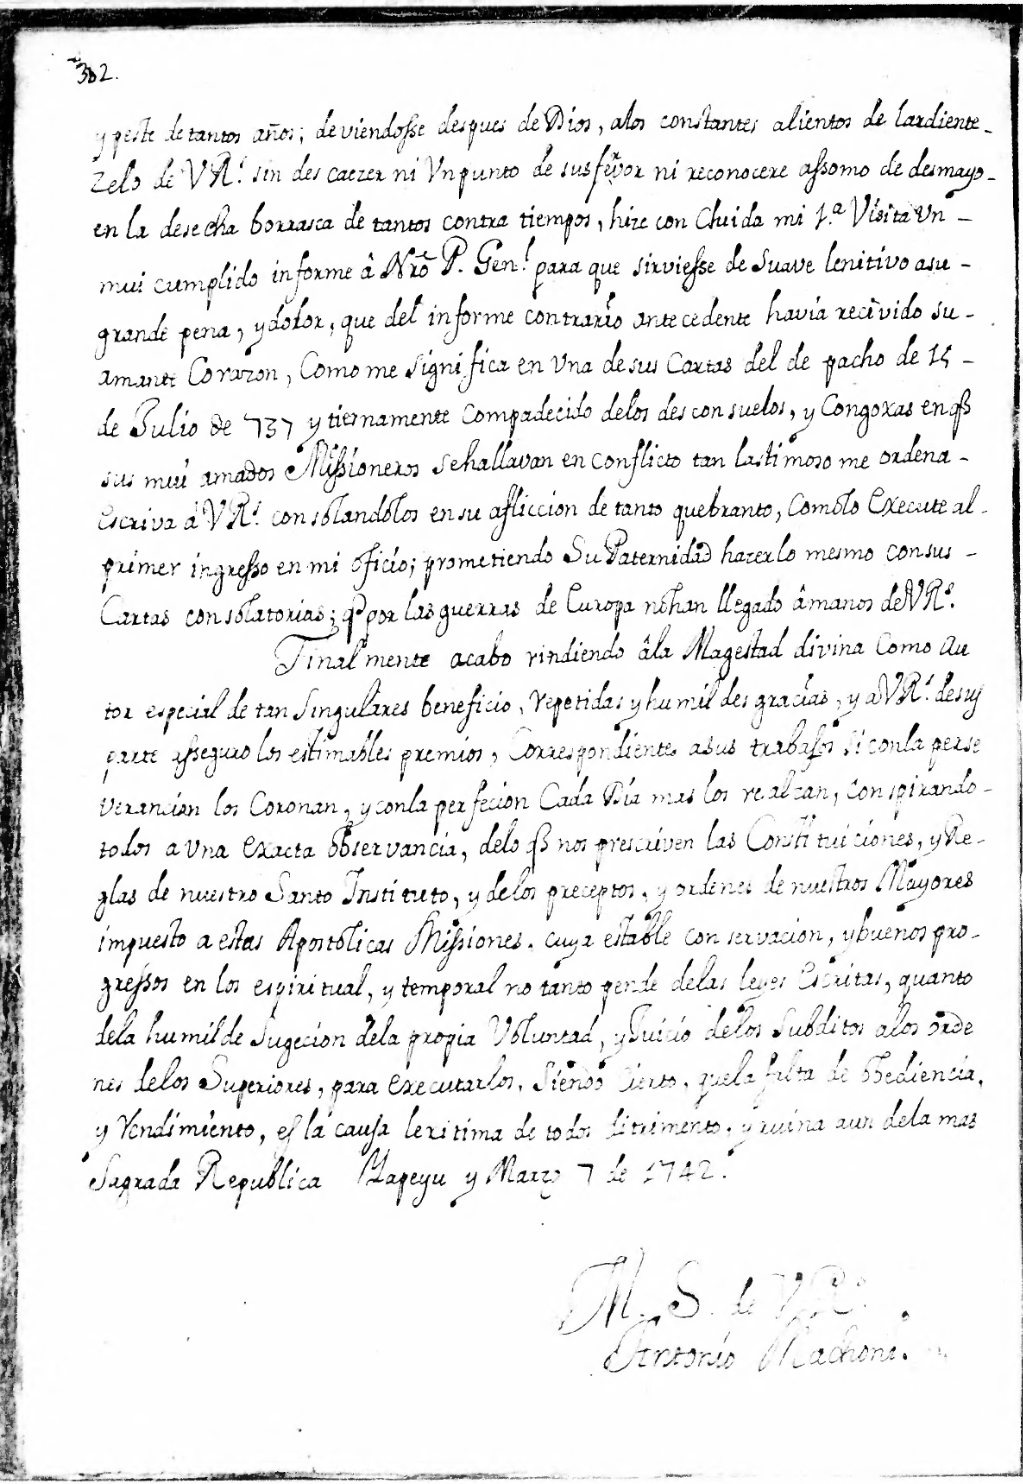 382.
y peste de tantos años; deviendosse despues de Dios, alos constantes alientos de lardiente
Zelo de VR.ˢ sin des caezer ni Vn punto de su fervor ni reconocere assomo de desmayo
en la desecha borrasca de tantos contra tiempos, hize con Cluida mi 1.ª Visita Vn
mui cumplido informe â Nrõ P. Gen.ˡ para que sirviesse de Suave lenitivo asu
grande pena, y dolor, que del informe contrario antecedente havia recevido su
amante Corazon, Como me significa en Una desus Cartas del des pacho de 15
de Julio de 737 y tiernamente Compadecido delos des consuelos, y Congoxas en q̃
sus mui amados Missioneros sehallavan en conflicto tan lastimoso me ordena
escriva á VR.ˢ consolandolos en su afliccion de tanto quebranto, Comolo Execute al
primer ingresso en mi oficio; prometiendo Su Paternidad hazerlo mesmo consus
Cartas consolatorias; q̃ por las guerras de Europa nohan llegado â manos de VR.ˢ
Finalmente acabo rindiendo âla Magestad divina Como Au
tor especial de tan Singulares beneficio, repetidas y humildes gracias, y a VR.ˢ desu
parte asseguro los estimables premios, Correspondientes asus trabajos si conla perse
verancian los Coronan, y conla perfecion Cada Dia mas los realzan, Conspirando
todos a Una Exacta observancia, delo q̃ nos prescriven las Constituiciones, y Re
glas de nuestro Santo Instituto, y delos preceptos, y ordenes de nuestros Mayores
impuesto a estas Apostolicas Missiones. cuya estable conservacion, y buenos pro
gressos en los espiritual, y temporal no tanto pende delas leyes Escritas, quanto
dela humilde Sugecion dela propia Voluntad, y Juicio delos Subditos alos orde
nes delos Superiores, para executarlos. Siendo Cierto, quela falta de obediencia,
y Rendimiento, es la causa lexitima de todos ditrimento, y ruina aun dela mas
Sagrada Republica Yapeyu y Marzo 7 de 1742.
M. S. de VR.ˢ
Antonio Machoni.